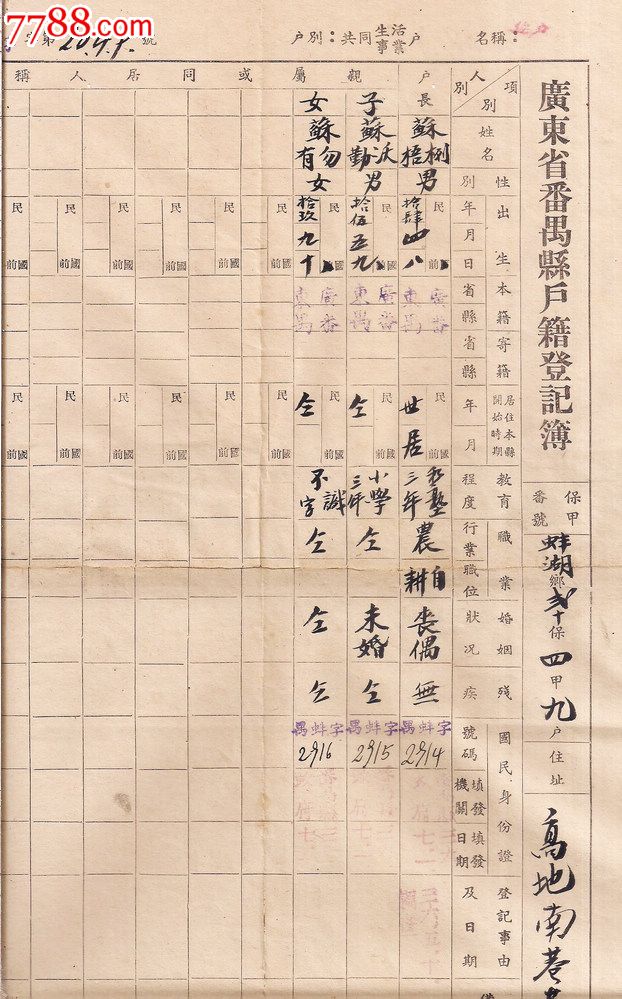 7788.com
字第2091號
户別：共同生活事業户
名稱：
廣東省番禺縣戶籍登記簿
保甲番號
蚌湖鄉
十保
四甲
九户
住址
高地南巷
項別
人別
姓名
性別
出生年月日
本籍
寄籍
省縣省縣
居住本縣開始時期
年月
教育程度
職業
行業職位
婚姻狀況
殘疾
國民身份證
號碼
填發機關
填發日期
登記事由及日期
户長
蘇
男
拾肆
四
八
民
前國
廣東
番禺
世居
私塾三年
農
自耕
喪偶
無
禺蚌字
2914
親屬或同居人稱
子
蘇沃勤
男
拾伍
五
九
廣東
番禺
仝
小學三年
仝
未婚
仝
禺蚌字
2915
女
蘇勿有
女
拾玖
九
十
廣東
番禺
仝
不識字
仝
仝
仝
禺蚌字
2916
民
前國
民
前國
民
前國
民
前國
民
前國
民
前國
民
前國
民
前國
民
前國
民
前國